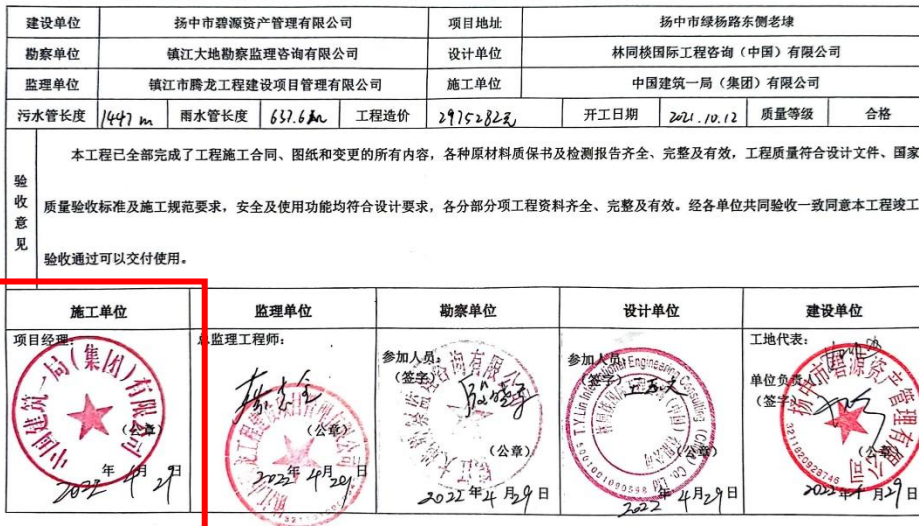 建设单位 扬中市碧源资产管理有限公司 项目地址 扬中市绿杨路东侧老埭
勘察单位 镇江大地勘察监理咨询有限公司 设计单位 林同棪国际工程咨询（中国）有限公司
监理单位 镇江市腾龙工程建设项目管理有限公司 施工单位 中国建筑一局（集团）有限公司
污水管长度 1447 m 雨水管长度 637.6m 工程造价 2975282元 开工日期 2021.10.12 质量等级 合格
验收意见
本工程已全部完成了工程施工合同、图纸和变更的所有内容，各种原材料质保书及检测报告齐全、完整及有效，工程质量符合设计文件、国家
质量验收标准及施工规范要求，安全及使用功能均符合设计要求，各分部分项工程资料齐全、完整及有效。经各单位共同验收一致同意本工程竣工
验收通过可以交付使用。
施工单位 监理单位 勘察单位 设计单位 建设单位
项目经理：
中国建筑一局(集团)有限公司
（公章）
2022年4月29日
总监理工程师：
（公章）
2022年4月29日
参加人员：
（签字）
（公章）
2022年4月29日
参加人员：
（签字）
T.Y.Lin International Engineering Consulting (China) Co. Ltd
（公章）
2022年4月29日
工地代表：
单位负责人：
（签字）
扬中市碧源资产管理有限公司
（公章）
2022年4月29日